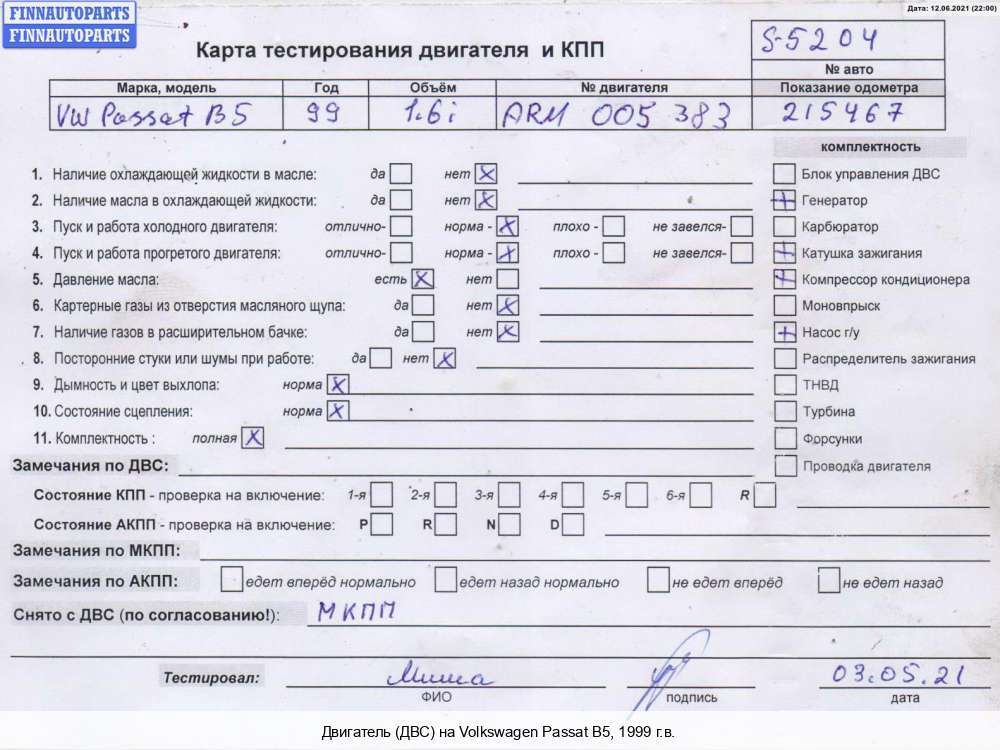 FINNAUTOPARTS
FINNAUTOPARTS
Дата: 12.06.2021 (22:00)
Карта тестирования двигателя и КПП
S-5204
№ авто
Марка, модель Год Объём № двигателя Показание одометра
VW Passat B5 99 1.6i ARM 005 383 215467
комплектность
1. Наличие охлаждающей жидкости в масле: да нет Блок управления ДВС
2. Наличие масла в охлаждающей жидкости: да нет Генератор
3. Пуск и работа холодного двигателя: отлично- норма - плохо - не завелся- Карбюратор
4. Пуск и работа прогретого двигателя: отлично- норма - плохо - не завелся- Катушка зажигания
5. Давление масла: есть нет Компрессор кондиционера
6. Картерные газы из отверстия масляного щупа: да нет Моновпрыск
7. Наличие газов в расширительном бачке: да нет Насос г/у
8. Посторонние стуки или шумы при работе: да нет Распределитель зажигания
9. Дымность и цвет выхлопа: норма ТНВД
10. Состояние сцепления: норма Турбина
11. Комплектность : полная Форсунки
Замечания по ДВС: Проводка двигателя
Состояние КПП - проверка на включение: 1-я 2-я 3-я 4-я 5-я 6-я R
Состояние АКПП - проверка на включение: P R N D
Замечания по МКПП:
Замечания по АКПП: едет вперёд нормально едет назад нормально не едет вперёд не едет назад
Снято с ДВС (по согласованию!): МКПП
Тестировал: Миша 03.05.21
ФИО подпись дата
Двигатель (ДВС) на Volkswagen Passat B5, 1999 г.в.